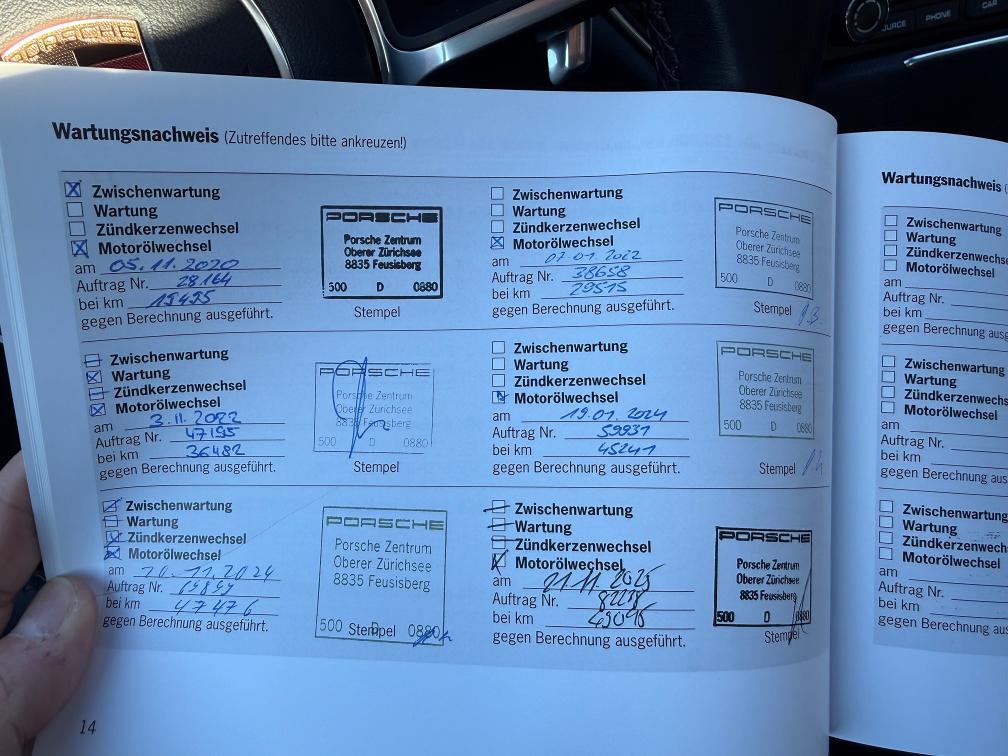 PORSCHE
SOURCE PHONE CAR
Wartungsnachweis (Zutreffendes bitte ankreuzen!)
Zwischenwartung
Wartung
Zündkerzenwechsel
Motorölwechsel
am 05.11.2020
Auftrag Nr. 28164
bei km 19495
gegen Berechnung ausgeführt.
PORSCHE
Porsche Zentrum
Oberer Zürichsee
8835 Feusisberg
500 D 0880
Stempel
Zwischenwartung
Wartung
Zündkerzenwechsel
Motorölwechsel
am 07.01.2022
Auftrag Nr. 38658
bei km 29515
gegen Berechnung ausgeführt.
PORSCHE
Porsche Zentrum
Oberer Zürichsee
8835 Feusisberg
500 D 0880
Stempel
Zwischenwartung
Wartung
Zündkerzenwechsel
Motorölwechsel
am 3.11.2022
Auftrag Nr. 47195
bei km 36482
gegen Berechnung ausgeführt.
PORSCHE
Porsche Zentrum
Oberer Zürichsee
8835 Feusisberg
500 D 0880
Stempel
Zwischenwartung
Wartung
Zündkerzenwechsel
Motorölwechsel
am 19.01.2024
Auftrag Nr. 59931
bei km 45241
gegen Berechnung ausgeführt.
PORSCHE
Porsche Zentrum
Oberer Zürichsee
8835 Feusisberg
500 D 0880
Stempel
Zwischenwartung
Wartung
Zündkerzenwechsel
Motorölwechsel
am 20.11.2024
Auftrag Nr.
bei km 47476
gegen Berechnung ausgeführt.
PORSCHE
Porsche Zentrum
Oberer Zürichsee
8835 Feusisberg
500 D 0880
Stempel
Zwischenwartung
Wartung
Zündkerzenwechsel
Motorölwechsel
am 21.11.2025
Auftrag Nr.
bei km 49046
gegen Berechnung ausgeführt.
PORSCHE
Porsche Zentrum
Oberer Zürichsee
8835 Feusisberg
500 D 0880
Stempel
14
Wartungsnachweis (
Zwischenwartung
Wartung
Zündkerzenwechse
Motorölwechsel
am
Auftrag Nr.
bei km
gegen Berechnung aus
Zwischenwartung
Wartung
Zündkerzenwechs
Motorölwechsel
am
Auftrag Nr.
bei km
gegen Berechnung aus
Zwischenwartung
Wartung
Zündkerzenwech
Motorölwechsel
am
Auftrag Nr.
bei km
gegen Berechnung au